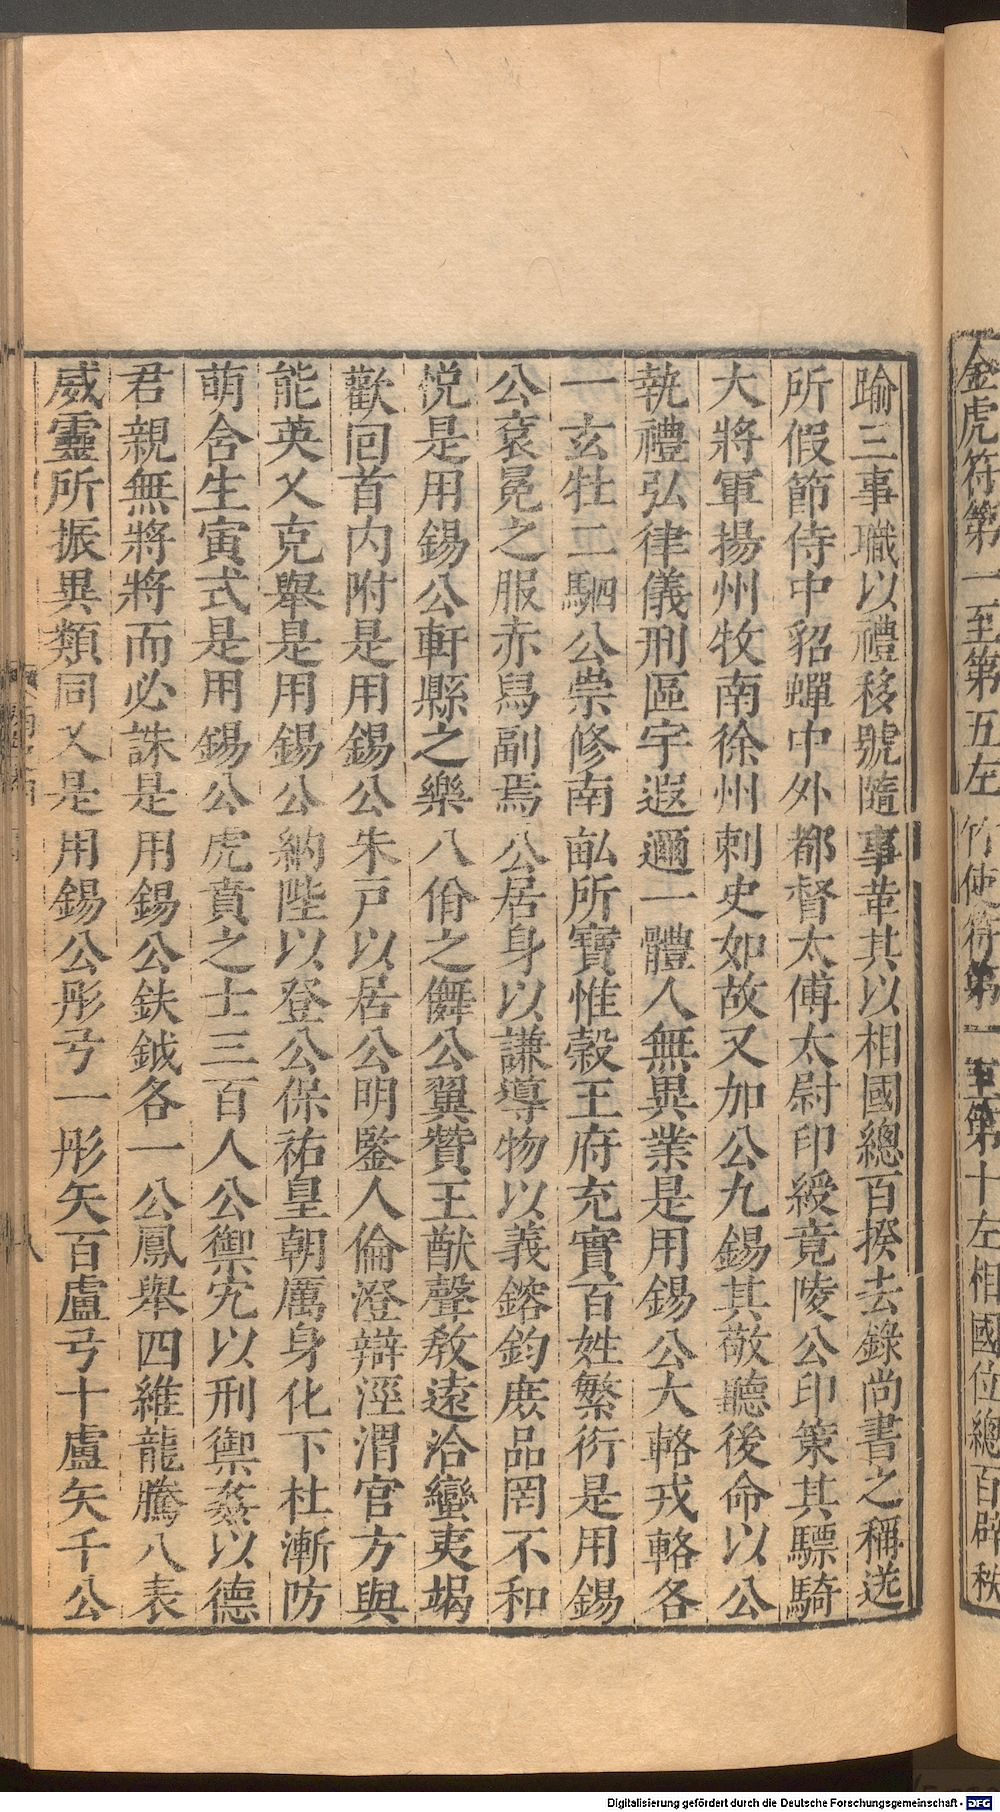 金虎符第一至第五左竹使符第一至第十左相國位總百辟秩
踰三事職以禮移號隨事革其以相國總百揆去錄尚書之稱送
所假節侍中貂蟬中外都督太傅太尉印綬竟陵公印策其驃騎
大將軍揚州牧南徐州刺史如故又加公九錫其敬聽後命以公
執禮弘律儀刑區宇遐邇一體人無異業是用錫公大輅戎輅各
一玄牡二駟公崇修南畝所寶惟穀王府充實百姓繁衍是用錫
公袞冕之服赤舄副焉公居身以謙導物以義鎔鈞庶品罔不和
悅是用錫公軒縣之樂八佾之儛公翼贊王猷聲教遠洽蠻夷竭
歡回首内附是用錫公朱戸以居公明鑒人倫澄辯涇渭官方與
能英乂克舉是用錫公納陛以登公保祐皇朝厲身化下杜漸防
萌含生寅式是用錫公虎賁之士三百人公禦宄以刑禦姦以德
君親無將將而必誅是用錫公鈇鉞各一公鳳舉四維龍騰八表
威靈所振異類同乂是用錫公彤弓一彤矢百盧弓十盧矢千公
八
Digitalisierung gefördert durch die Deutsche Forschungsgemeinschaft - DFG